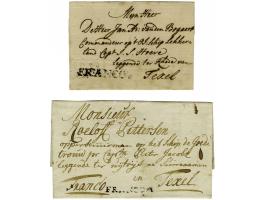 Myn Heer
De Heer Jan As. vanden Bogaert
Commandeur op t Schip
land Capt. J. S. Stavre
leggende ter Rheede van
FRANCO Texel
Monsieur
Roeloff Pittersen
opperstuurman op het Schip de goede
trouw for Capt. Pieter Jacobs
leggende
en
Franco FRANCO Texel